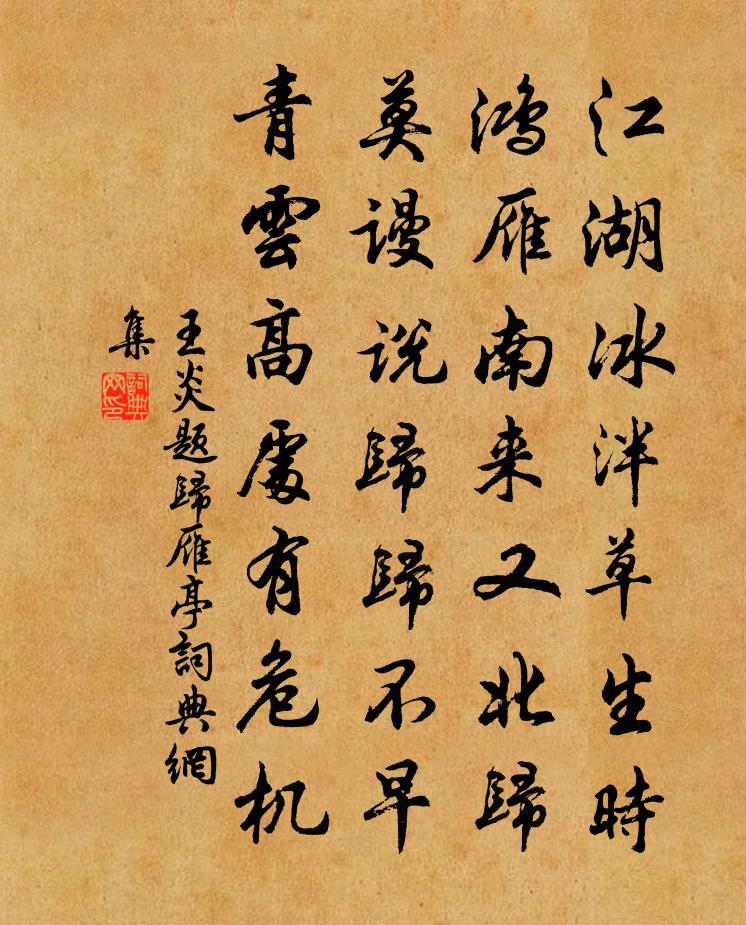 江湖冰泮草生時
鸿雁南来又北歸
莫谩说歸歸不早
青雲高處有危机
王炎题歸雁亭詞典網
集
詞典
网印